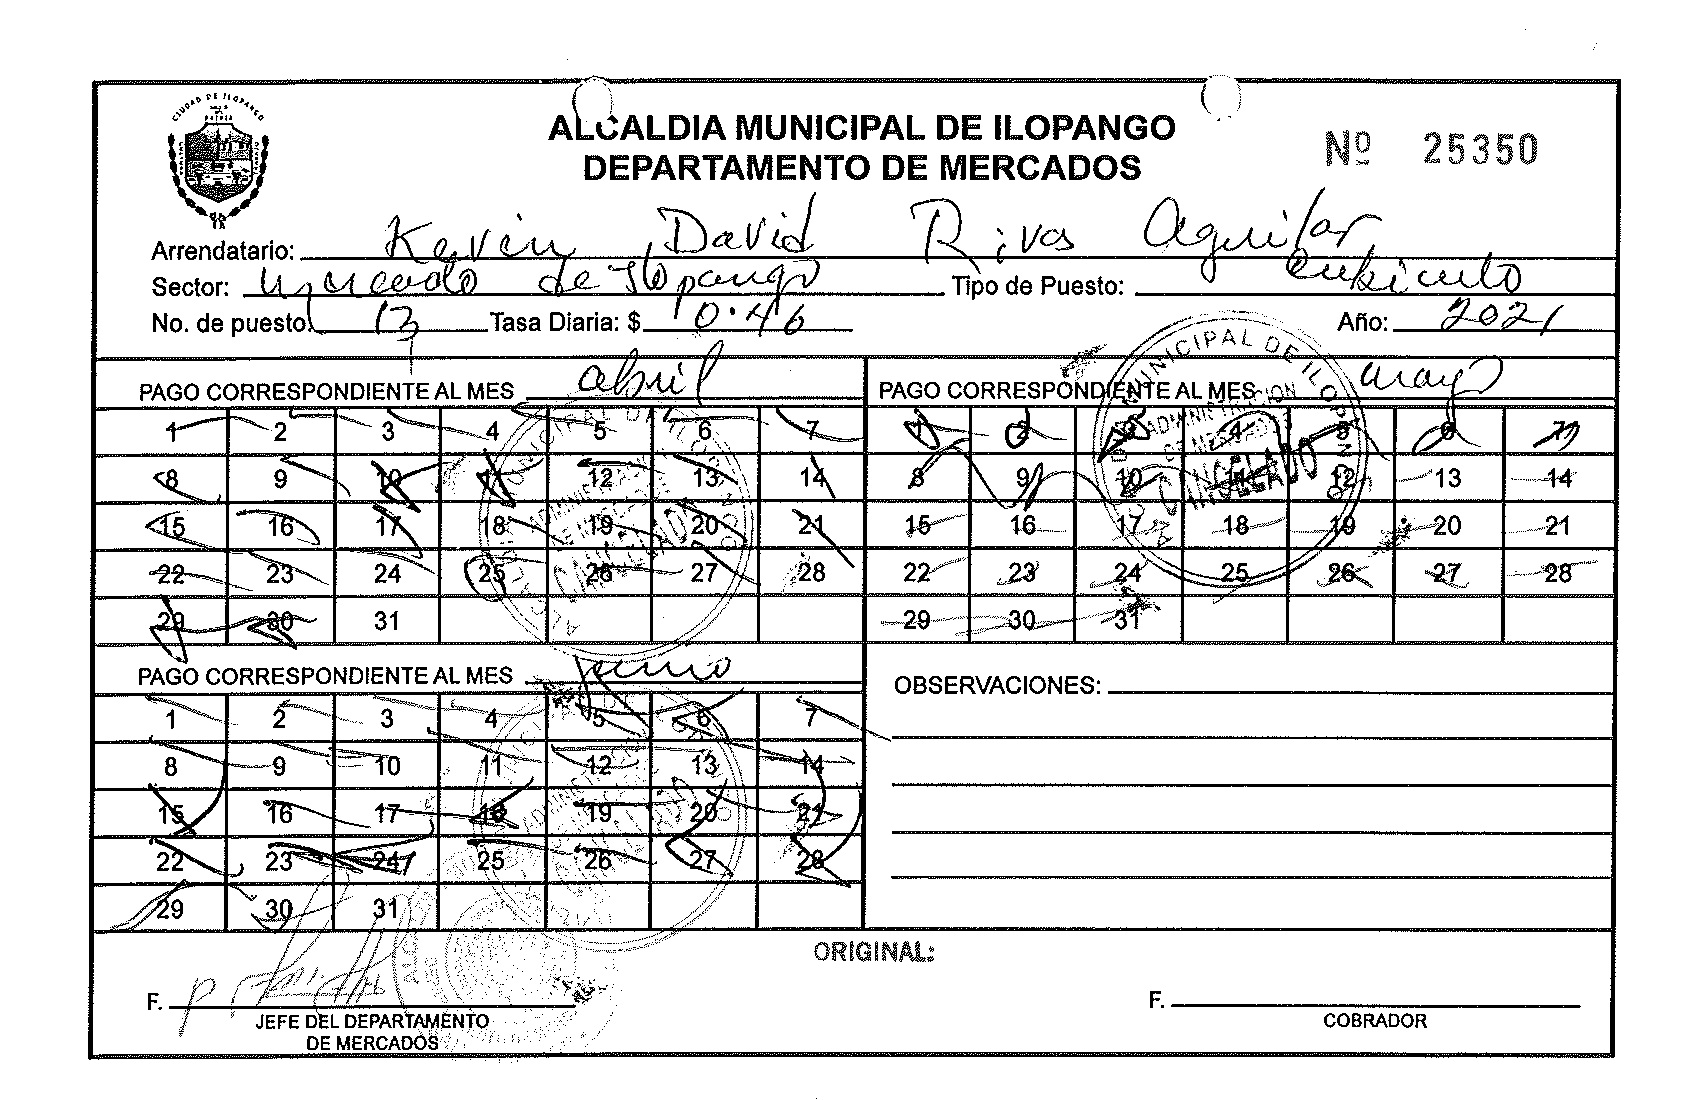 CIUDAD DE ILOPANGO
ALCALDIA MUNICIPAL DE ILOPANGO
DEPARTAMENTO DE MERCADOS
Nº 25350
Arrendatario: Kevin David Rivas Aguilar
Sector: Mercado de Ilopango Tipo de Puesto: cubiculo
No. de puesto: 13 Tasa Diaria: $ 0.46 Año: 2021
PAGO CORRESPONDIENTE AL MES abril
1 2 3 4 5 6 7
8 9 10 11 12 13 14
15 16 17 18 19 20 21
22 23 24 25 26 27 28
29 30 31
PAGO CORRESPONDIENTE AL MES mayo
1 2 3 4 5 6 7
8 9 10 11 12 13 14
15 16 17 18 19 20 21
22 23 24 25 26 27 28
29 30 31
MUNICIPAL DE ILOPANGO
ADMINISTRACION
DE MERCADOS
CANCELADO
PAGO CORRESPONDIENTE AL MES junio
1 2 3 4 5 6 7
8 9 10 11 12 13 14
15 16 17 18 19 20 21
22 23 24 25 26 27 28
29 30 31
OBSERVACIONES:
ORIGINAL:
F.
JEFE DEL DEPARTAMENTO
DE MERCADOS
F.
COBRADOR